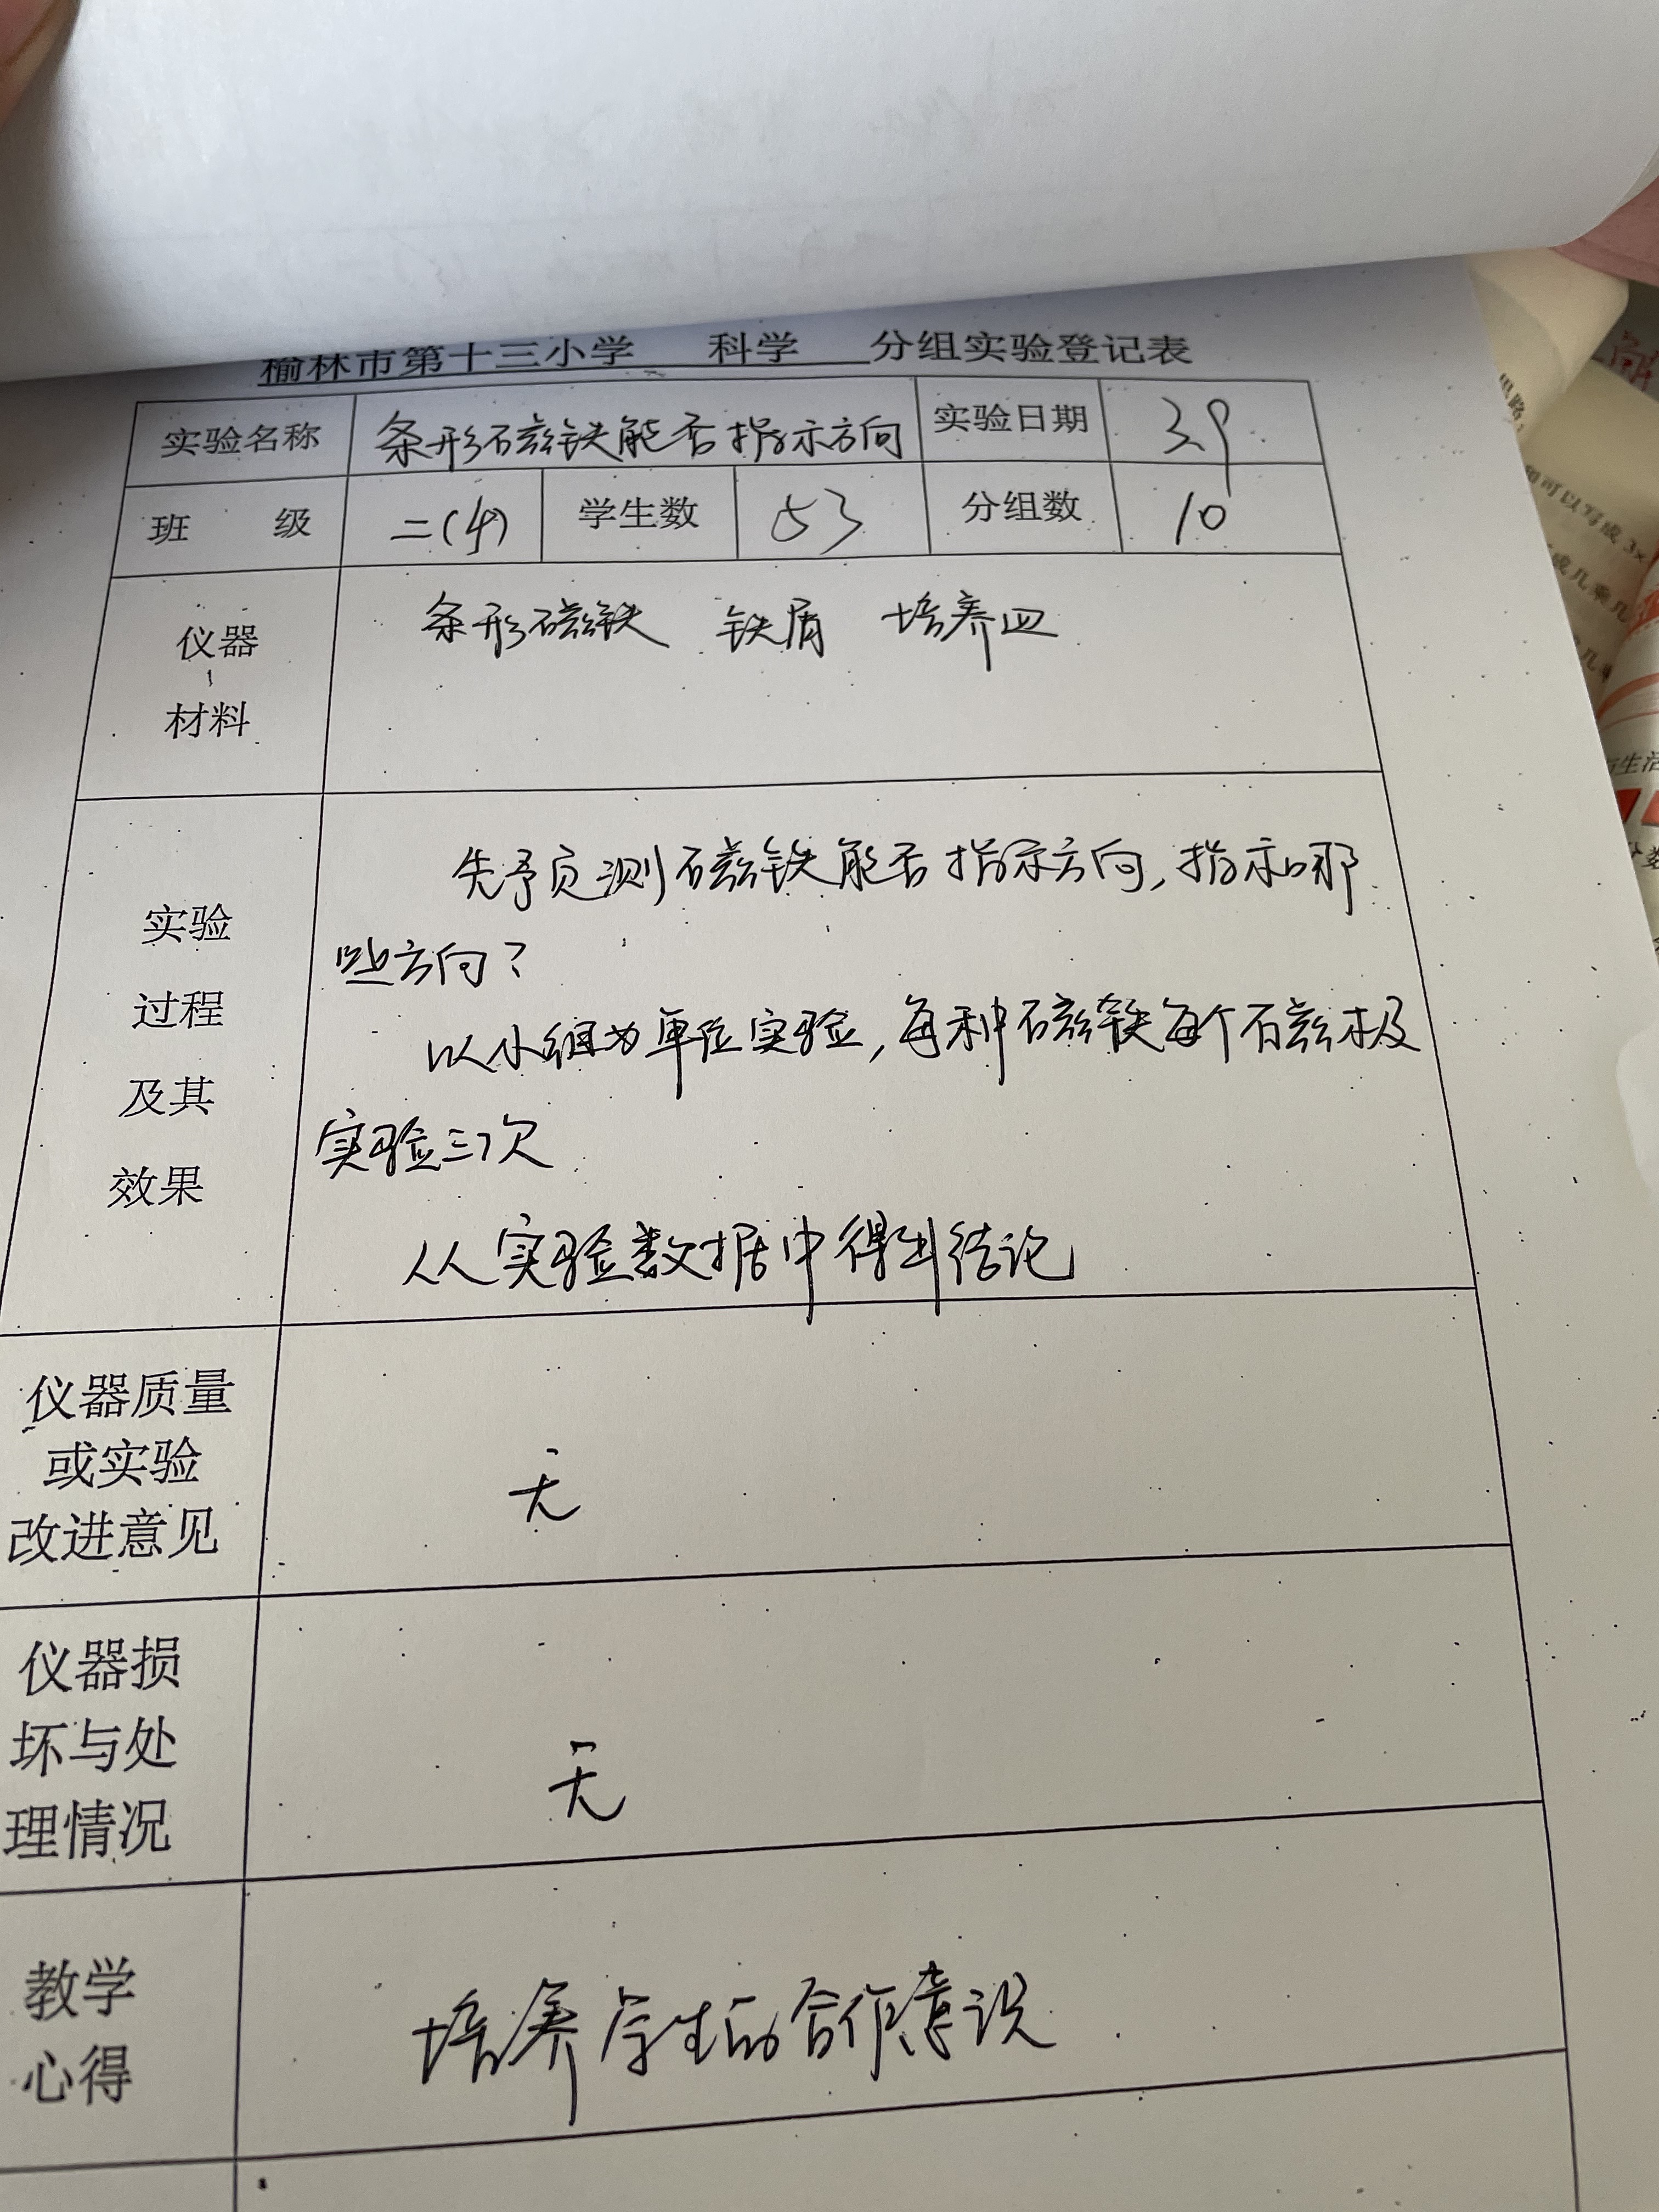 榆林市第十三小学 科学 分组实验登记表
实验名称 条形磁铁能否指示方向 实验日期 3.9
班 级 二(4) 学生数 53 分组数 10
仪器
材料
条形磁铁 铁屑 培养皿
实验
过程
及其
效果
先予页测磁铁能否指示方向,指示哪
些方向?
以小组为单位实验,每种磁铁每个磁极
实验三次
从实验数据中得出结论
仪器质量
或实验
改进意见
无
仪器损
坏与处
理情况
无
教学
心得
培养学生的合作意识
和可以写成3×
成几乘几